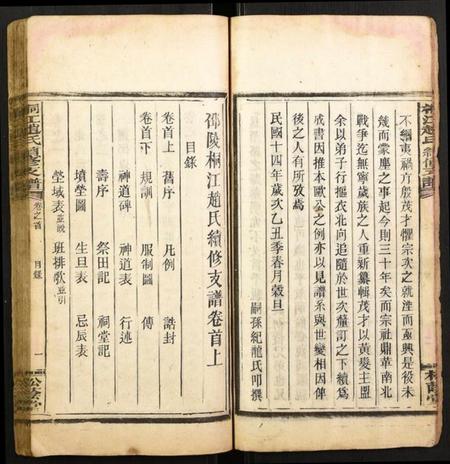 不綱夷禍方殷茂才懼宗次之就湮而蓳興是役未
幾而蒙塵之事起今則三十年矣而宗社鼎革南北
戰爭迄無寧歲族之人重新纂輯茂才以黃燮主盟
余以弟子行摳衣北向追隨於世次董訂之下續爲
成書因推本歐公之例亦以見譜系與世變相因俾
後之人有所攷焉
民國十四年歲次乙丑季春月穀旦
嗣孫紀龍氏叩撰
桐江趙氏續修支譜
邵陵桐江趙氏續修支譜卷首上
目錄
卷首上 舊序 凡例 誥封
卷首下 規訓 服制圖 傳
神道碑 神道表 行述
祭田記 祠堂記
墳塋圖 生旦表 忌辰表
塋域表並說 班排歌並引
桐江趙氏續修支譜 卷之首 目錄 一 松蔭堂